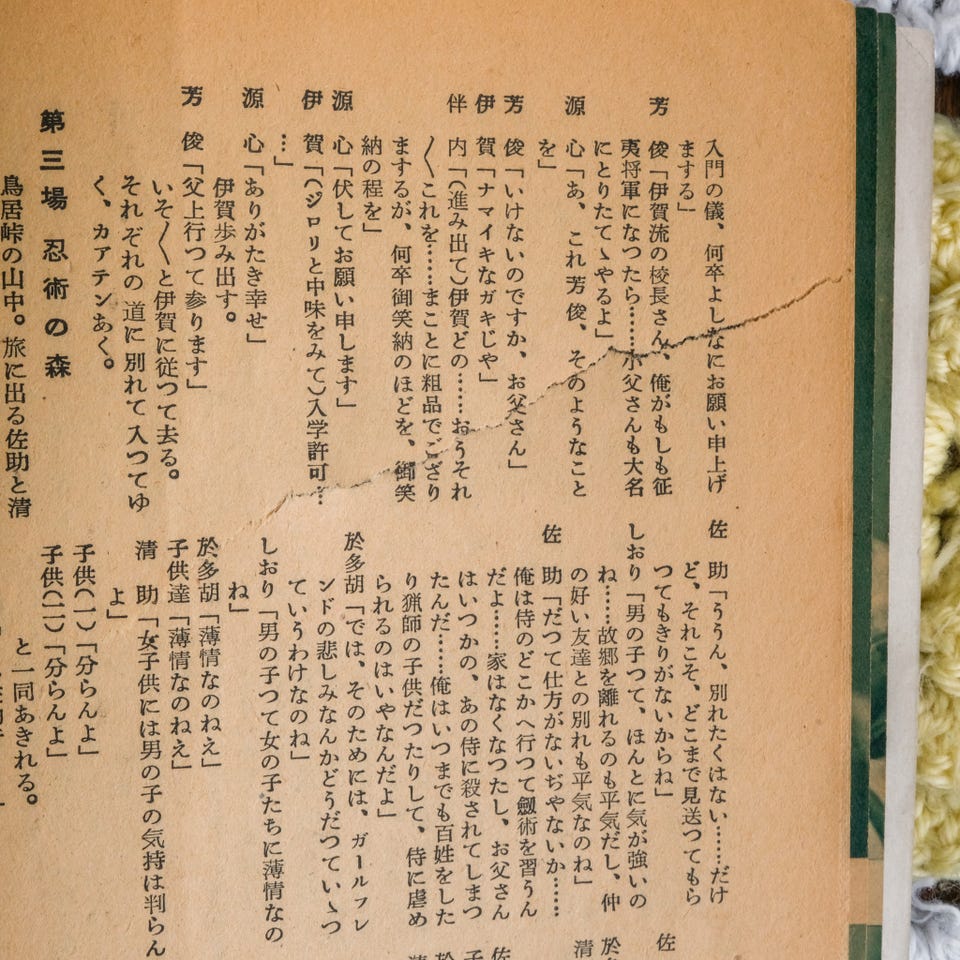 入門の儀、何卒よしなにお願い申上げ
まする」
芳俊「伊賀流の校長さん、俺がもしも征
夷将軍になつたら……小父さんも大名
にとりたてゝやるよ」
源心「あ、これ芳俊、そのようなこと
を」
芳俊「いけないのですか、お父さん」
伊賀「ナマイキなガキじや」
伴内「(進み出て)伊賀どの……おうそれ
〳〵これを……まことに粗品でござり
まするが、何卒御笑納のほどを、御笑
納の程を」
源心「伏してお願い申します」
伊賀「(ジロリと中味をみて)入学許可…
…」
源心「ありがたき幸せ」
伊賀歩み出す。
芳俊「父上行つて参ります」
いそ〳〵と伊賀に従つて去る。
それぞれの道に別れて入つてゆ
く、カアテンあく。
第三場 忍術の森
鳥居峠の山中。旅に出る佐助と清
佐助「ううん、別れたくはない……だけ
ど、それこそ、どこまで見送つてもら
つてもきりがないからね」
しおり「男の子つて、ほんとに気が強いの
ね……故郷を離れるのも平気だし、仲
の好い友達との別れも平気なのね」
佐助「だつて仕方がないぢやないか……
俺は侍のどこかへ行つて劔術を習うん
だよ……家はなくなつたし、お父さん
はいつかの、あの侍に殺されてしまつ
たんだ……俺はいつまでも百姓をした
り猟師の子供だつたりして、侍に虐め
られるのはいやなんだよ」
於多胡「では、そのためには、ガールフレ
ンドの悲しみなんかどうだつていゝつ
ていうわけなのね」
しおり「男の子つて女の子たちに薄情なの
ね」
於多胡「薄情なのねえ」
子供達「薄情なのねえ」
清助「女子供には男の子の気持は判らん
よ」
子供(一)「分らんよ」
子供(二)「分らんよ」
と一同あきれる。
佐
於
清
佐
子
於